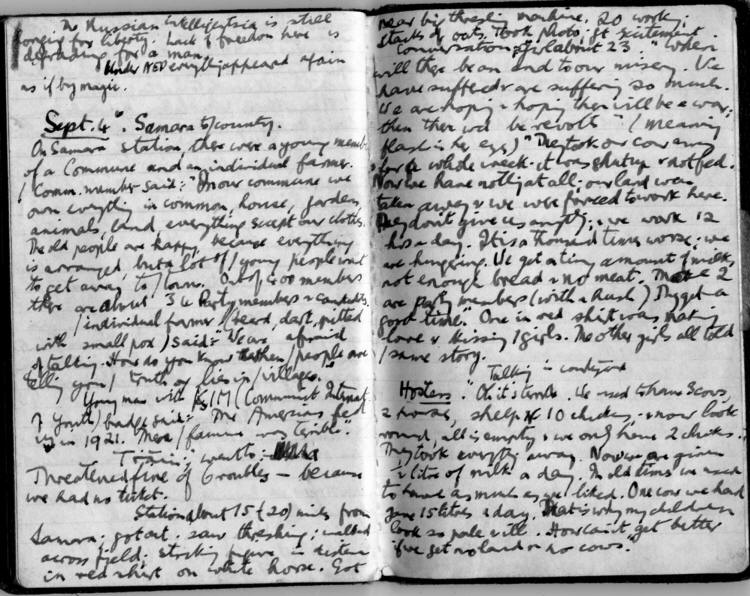 The Russian intelligentsia is still
longing for liberty. Lack of freedom here is
degrading for a man.
Under NEP everything appeared again
as if by magic.
Sept. 4th. Samara & country.
On Samara station, there were a young member
of a Commune and an individual farmer.
Comm. member said: "In our commune we
own everything in common, house, garden,
animals, land, everything except our clothes.
The old people are happy, because everything
is arranged, but a lot of / young people want
to get away to / towns. Out of 400 members
there are about 34 Party members & candidates.
/ individual farmer / (beard, dark, pitted
with small pox) said: We are afraid
of talking. How do you know / people are
telling you / truth or lies in / villages."
Young man with K I M (Communist Internat.
of Youth) badge said: "The Americans fed
us in 1921. There / famine was terrible".
Train; went
Threatened fine of 6 roubles — because
we had no ticket.
Station about 15 (20) miles from
Samara; got out. saw threshing; walked
across field; striking figure in distance
in red shirt on white horse. Got
near big threshing machine, 20 working;
stacks of oats. Took photo: gt excitement.
Conversation: girl about 23. "When
will there be an end to our misery. We
have suffered & are suffering so much.
We are hoping & hoping there will be a war;
then there wd be revolt" (meaning
flash in her eyes) "They took our cow away
for a whole week. it was shut up & not fed.
Now we have nothing at all; our land was
taken away & we were forced to work here.
They don't give us anything, & we work 12
hrs a day. It is a thousand times worse; we
are hungering. We get a tiny amount of milk,
not enough bread & no meat. These 2
are party members (with a hush) They get a
good time." One in red shirt was making
love & kissing / girls. The other girls all told
/ same story.
Talking in
Hostess: "Oh it's terrible. We used to have 3 cows,
2 horses, sheep & 10 chickens, & now look
round, all is empty & we only have 2 chickens.
They took everything away. Now we are given
½ litre of milk a day. In old times we used
to have as much as we liked. One cow we had
gave 15 litres a day. That is why my children
look so pale & ill. How can it get better
if we get no land or no cows."